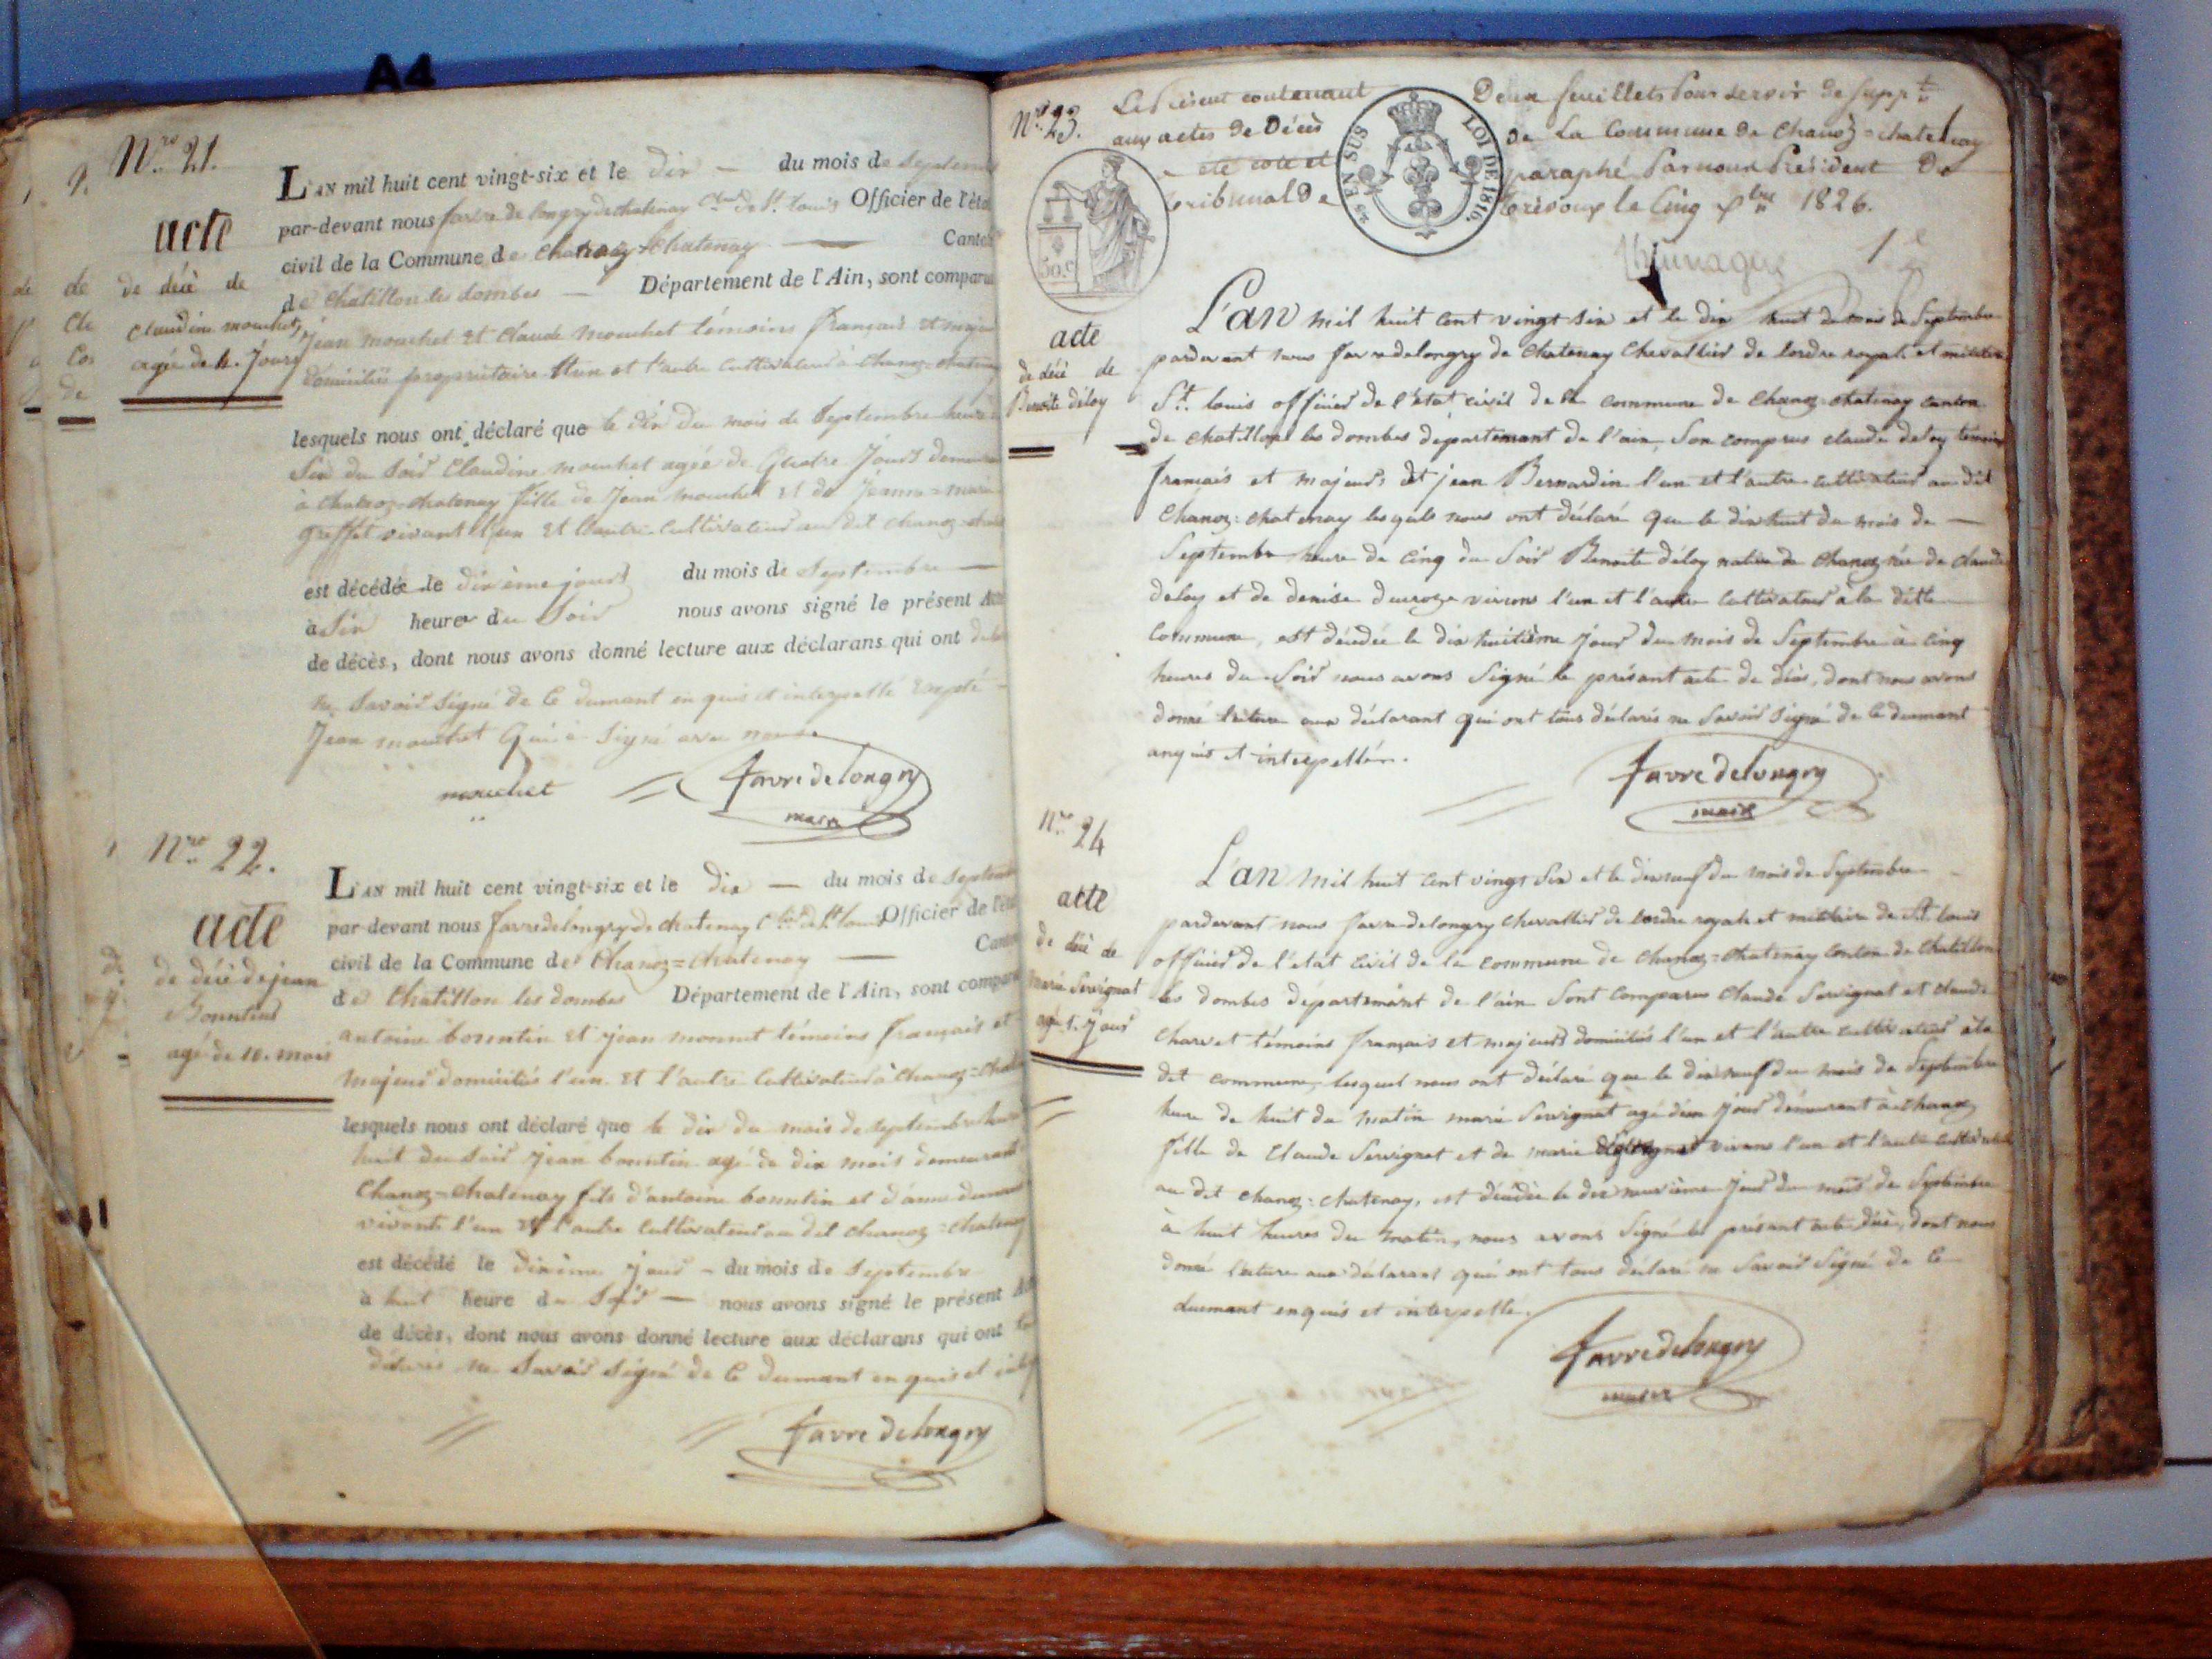 A4
Nro 21.
acte
de décè de
Claudine mouchet
agée de 4. jours
L'AN mil huit cent vingt-six et le dix — du mois de Septem
par-devant nous favre de longry de chatenay Clier de St. Louis Officier de l'éta
civil de la Commune de Chanoz=Chatenay — Canto
de Chatillon les dombes — Département de l'Ain, sont comparu
Jean mouchet et Claude mouchet témoins français et maje
domiciliés propriétaire l'un et l'autre cultivateur à Chanoz-chatenay
lesquels nous ont déclaré que le dix du mois de Septembre heure
Six du Soir Claudine mouchet agée de Quatre Jours demeur
à chanoz-chatenay fille de Jean mouchet et de Jeanne=marie
greffet vivant l'un et l'autre Cultivateur au dit chanoz-chat
est décédée le dixième jours du mois de Septembre —
à Six heures du Soir nous avons signé le présent Acte
de décès, dont nous avons donné lecture aux déclarans qui ont
ne Savoir Signé de ce dumant en quis et interpellé exepté
Jean mouchet Qui à Signé avec nous
mouchet = favre delongry
maire
Nro 22.
acte
de décè de jean
Bountin
agé de 10. mois
L'AN mil huit cent vingt-six et le dix — du mois de Septem
par-devant nous favre delongry de chatenay Clier de St. Louis Officier de l'éta
civil de la Commune de Chanoz=Chatenay — Canton
de Chatillon les dombes Département de l'Ain, sont compar
antoine bountin et jean monnet témoins français et
majeur domiciliés l'un et l'autre Cultivateur à Chanoz=Chat
lesquels nous ont déclaré que le dix du mois de septembre heure
huit du Soir jean bountin agé de dix mois demeurant
Chanoz=Chatenay fils d'antoine bountin et d'anne
vivant l'un et l'autre Cultivateur au dit chanoz=Chatenay
est décédé le dixième jour - du mois de Septembre
à huit heure du Soir — nous avons signé le présent
de décès, dont nous avons donné lecture aux déclarans qui ont
déclarés ne Savoir Signé de ce dumant en quis et
favre delongry
Nro 23.
Le Présent contenant Deux feuillets Pour servir de Suppt
aux actes de Décès de La Commune de Chanoz=chatenay
été coté et paraphé Par nous Président Du
tribunal de trévoux le Cinq 1826.
EN SUS LOI DE 1816.
50.c
1e
acte
de décè de
Benoite déloy
L'an mil huit cent vingt six et le dix huit du mois de Septembre
pardevant nous favre delongry de Chatenay Chevallier de lordre royal et militaire
St. louis officier de l'etat civil de la commune de Chanoz-chatenay canton
de chatillon les dombes département de l'ain, Son comprus claude deloy temoin
français et majeurs et jean Bernardin l'un et l'autre cultivateur au dit
Chanoz=chatenay lesquels nous ont déclaré que le dix huit du mois de —
Septembre heure de cinq du Soir Benoite déloy native de Chanoz née de claude
deloy et de denise vivans l'un et l'autre Cultivateur à la ditte
Commune, est décédée le dix huitième jour du mois de Septembre à cinq
heures du Soir nous avons Signé le présant acte de décès, dont nous avons
donné lecture aux déclarant qui ont tous déclarés ne Savoir Signé de ce dumant
anquis et interpellés.
favre delongry
maire
Nro 24
acte
de décè de
marie Servignat
agé 1. jour
L'an Mil huit Cent vingt Six et le dix neuf du mois de Septembre
pardevant nous favre delongry Chevallier de lordre royale et militaire de St. louis
officier de l'etat civil de la commune de Chanoz=Chatenay Canton de Chatillon
les dombes département de l'ain Sont comparus Claude Servignat et claude
Charvet témoins français et majeurs domiciliés l'un et l'autre cultivateur à la
dit commune, lesquel nous ont déclaré que le dix neuf du mois de Septembre
heure de huit du matin marie Servignat agé d'un jour démeurant à Chanoz
fille de Claude Servignat et de marie vivans l'un et l'autre cultivateur
au dit chanoz=chatenay, est décédée le dix neuvième jour du mois de Septembre
à huit heures du matin, nous avons Signé le présant acte décè, dont nous
donné lecture aux déclarant qui ont tous déclaré ne Savoir Signé de ce
dumant enquis et interpellé.
favre delongry
maire